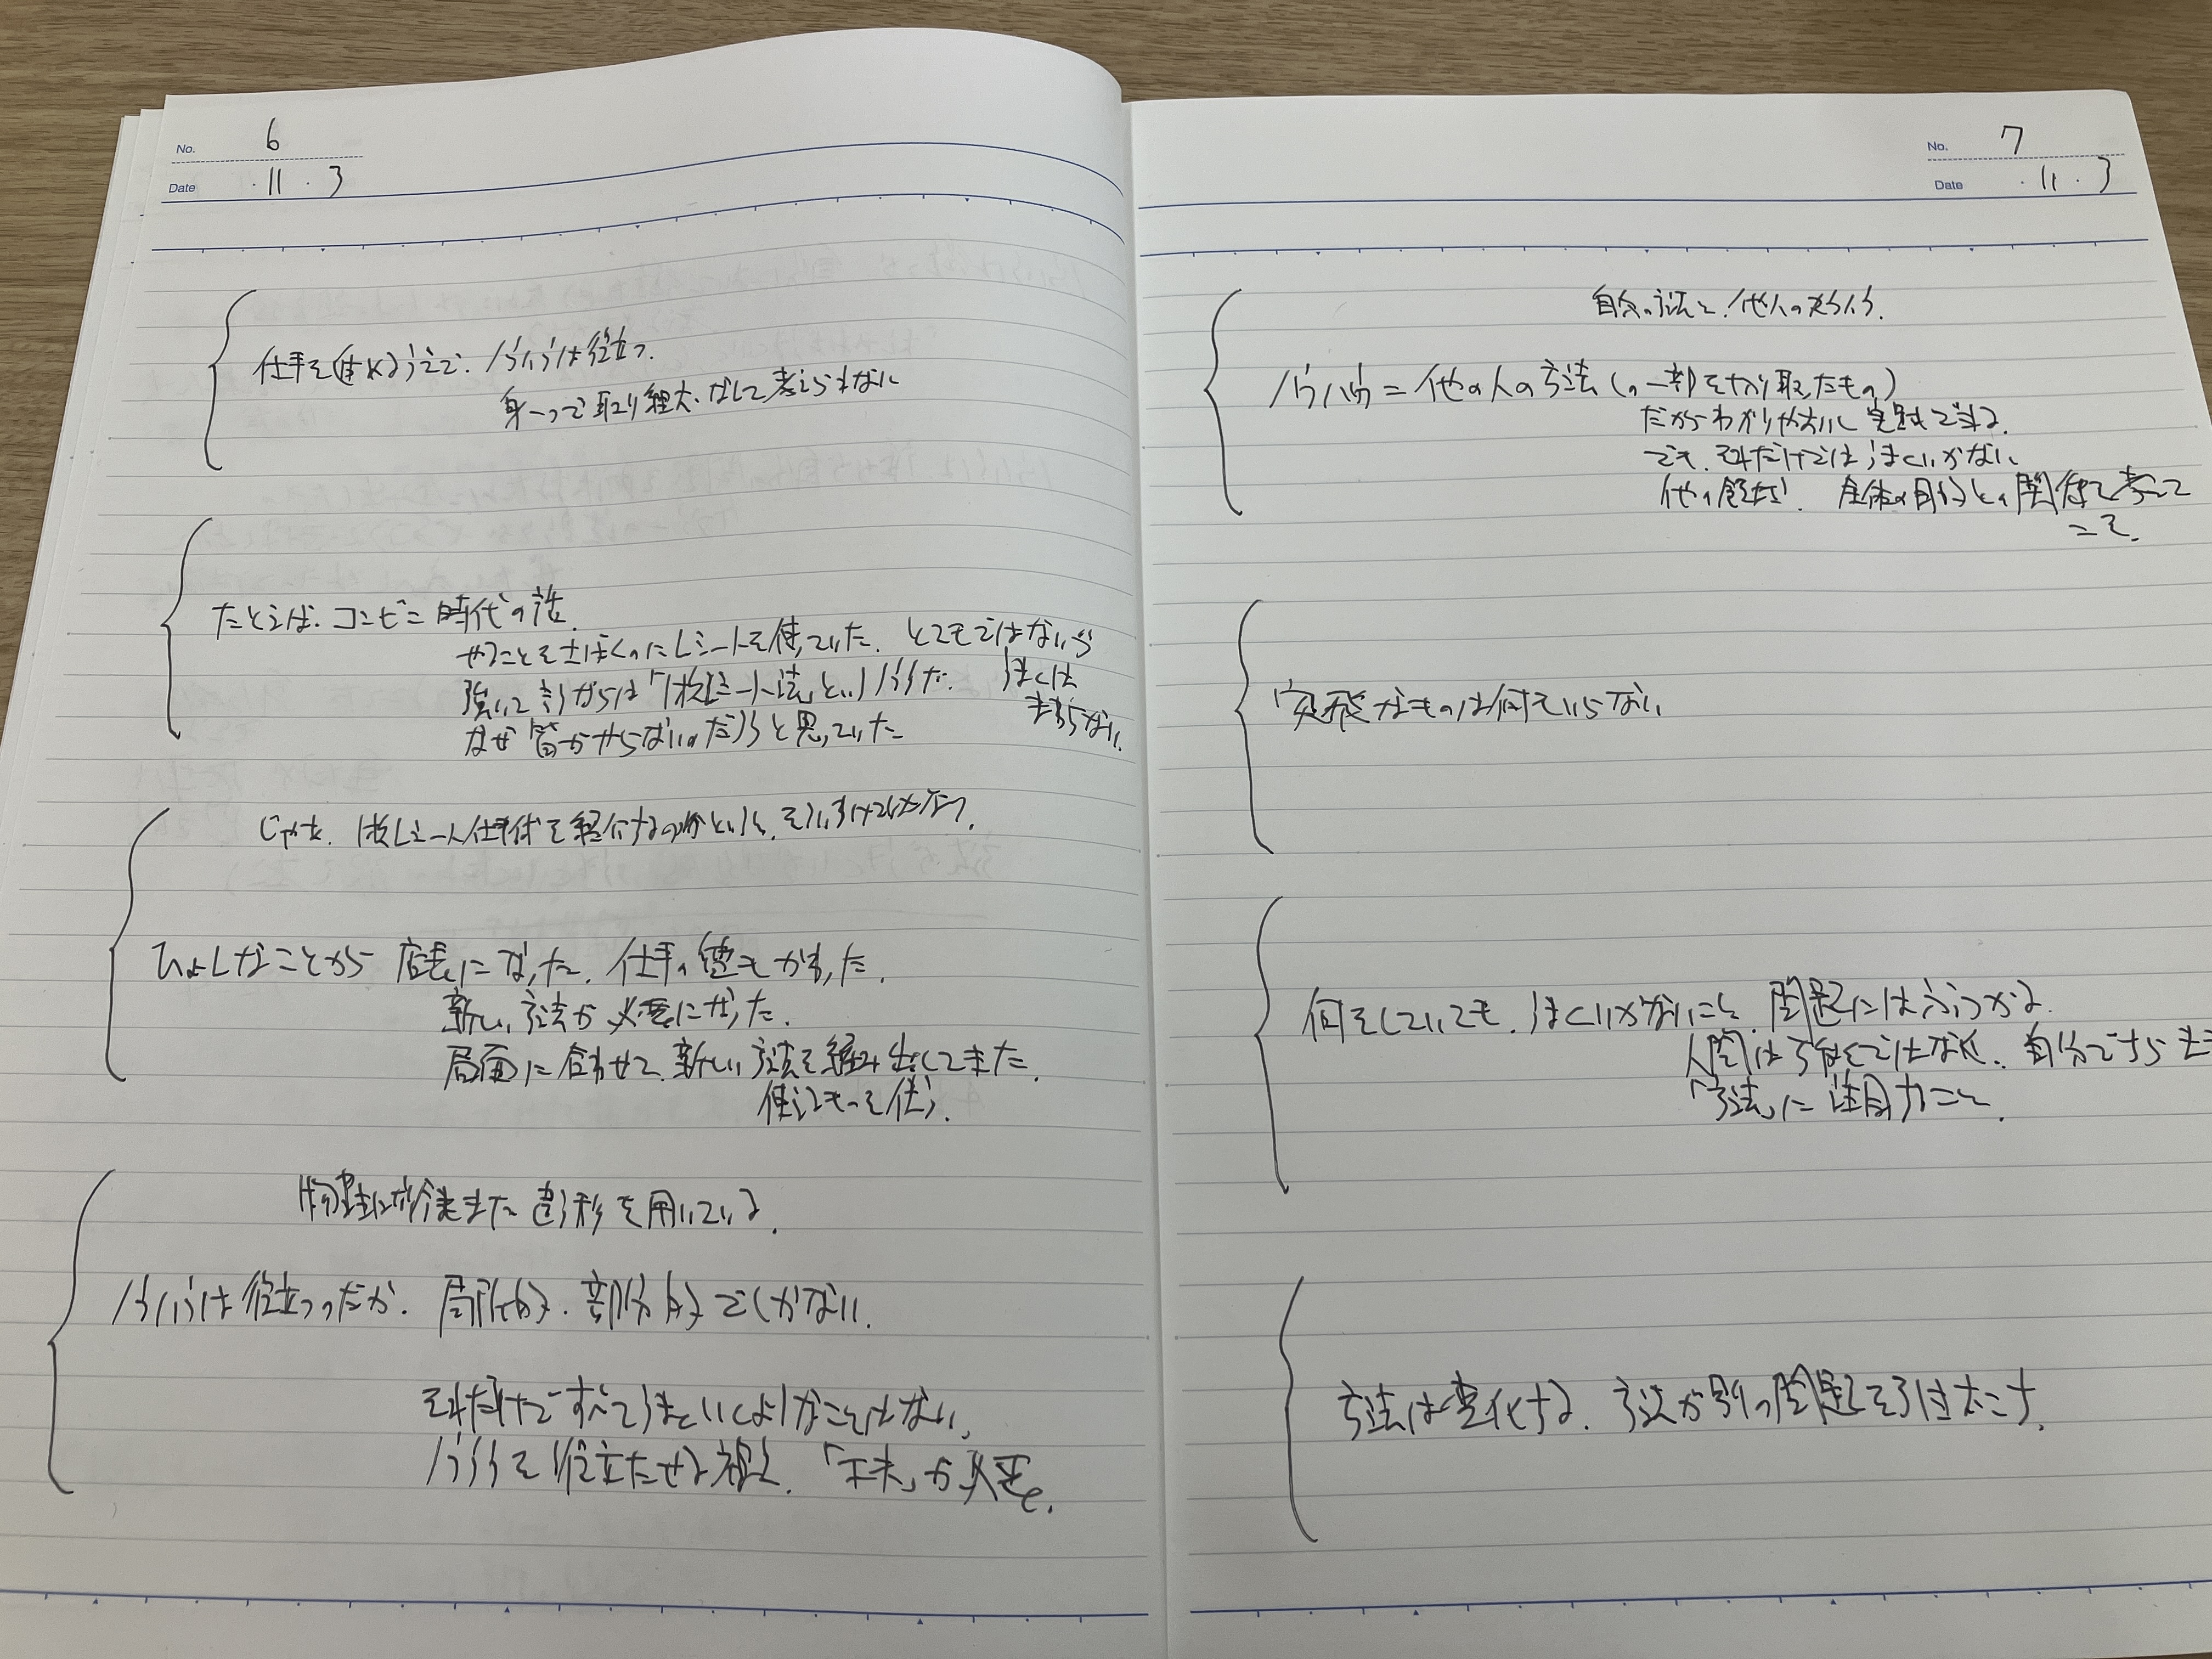 No. 6
Date ・11・3
仕事を進めるうえで、ノウハウは役立つ。
身一つで取り組む、なんて考えられない
たとえば、コンビニ時代の話。
やることを レシートを使っていた。とてもではないが
強いて言うからは「1枚レシート法」というノウハウだ。 うまくは
なぜ皆やらないのだろうと思っていた
じゃあ、1枚レシート仕事術を紹介するのかというと、そういうわけではない。
ひょんなことから 店長になった。仕事の質もかわった。
新しい方法が必要になった。
局面に合わせて、新しい方法を編み出してきた。
使えるものを使う。
また違う形を用いている。
ノウハウは役立つのだが、局所的、部分的でしかない。
それだけですべてうまくいくようなことはない。
ノウハウを役立たせる 、「工夫」が必要。
No. 7
Date ・11・3
自分の方法と、他人のノウハウ。
ノウハウ＝他の人の方法（の一部を切り取ったもの）
だからわかりやすいし実践できる。
でも、それだけではうまくいかない
他の 全体の自分との関係で考えて
こそ。
突飛なものは何もいらない
何をしていても、うまくいかないこと、問題にはぶつかる。
人間は ではなく、自分で
「方法」に注目すること。
方法は変化する。方法が別の問題を引き起こす。